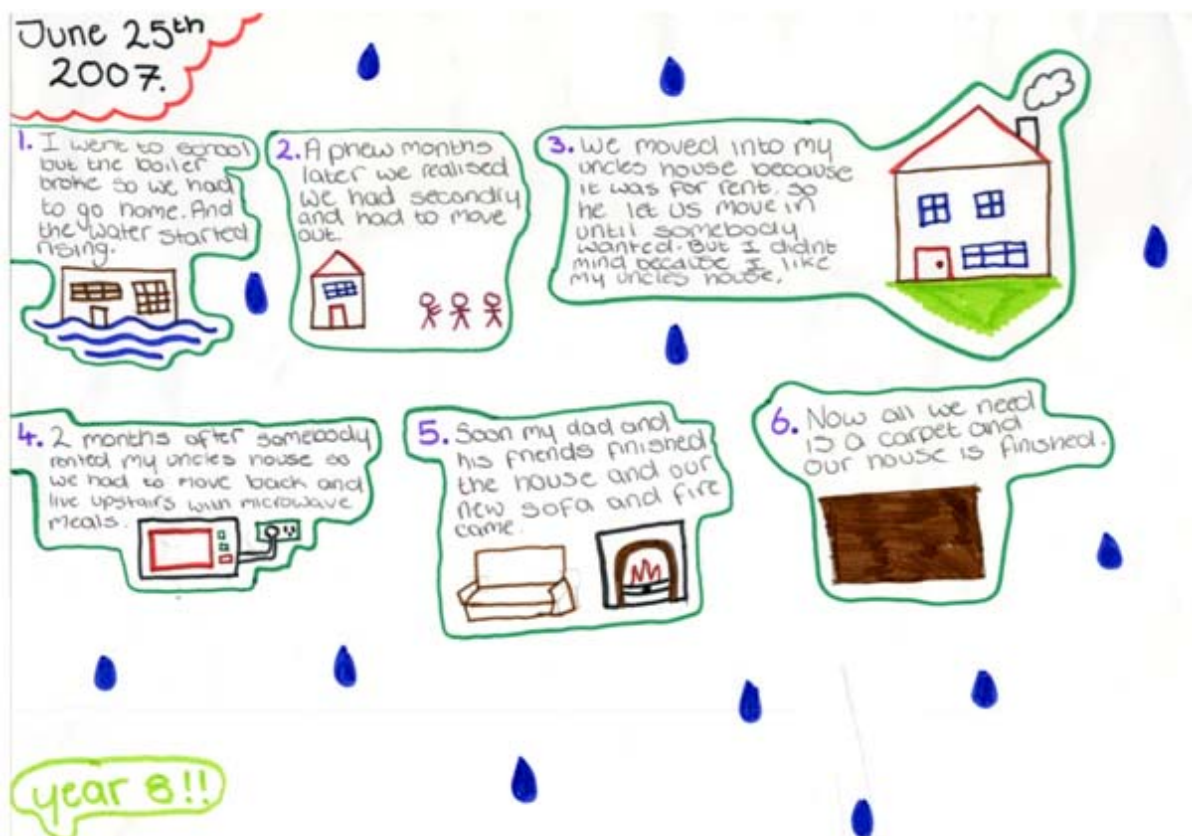 June 25th
2007.
1. I went to school
but the boiler
broke so we had
to go home. And
the water started
rising.
2. A phew months
later we realised
we had secondry
and had to move
out.
3. We moved into my
uncles house because
it was for rent. so
he let us move in
until somebody
wanted. But I didnt
mind because I like
my uncles house.
4. 2 months after somebody
rented my uncles house so
we had to move back and
live upstairs with microwave
meals.
5. Soon my dad and
his friends finished
the house and our
new sofa and fire
came.
6. Now all we need
is a carpet and
our house is finished.
year 8!!